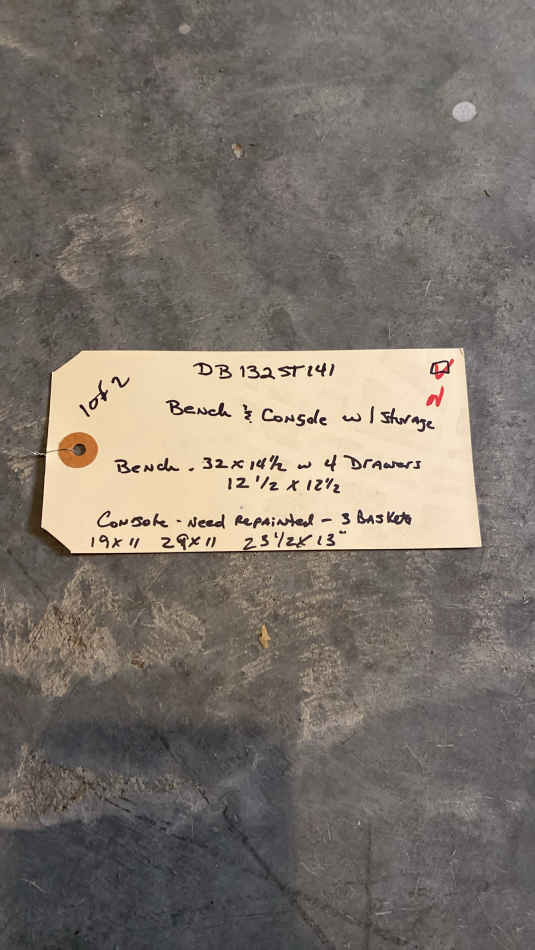 1 of 2
DB132ST141
Bench & Console w/ Storage
Bench - 32 x 14 1/2 w 4 Drawers
12 1/2 x 12 1/2
Console - Need Repainted - 3 Baskets
19 x 11 29 x 11 23 1/2 x 13"